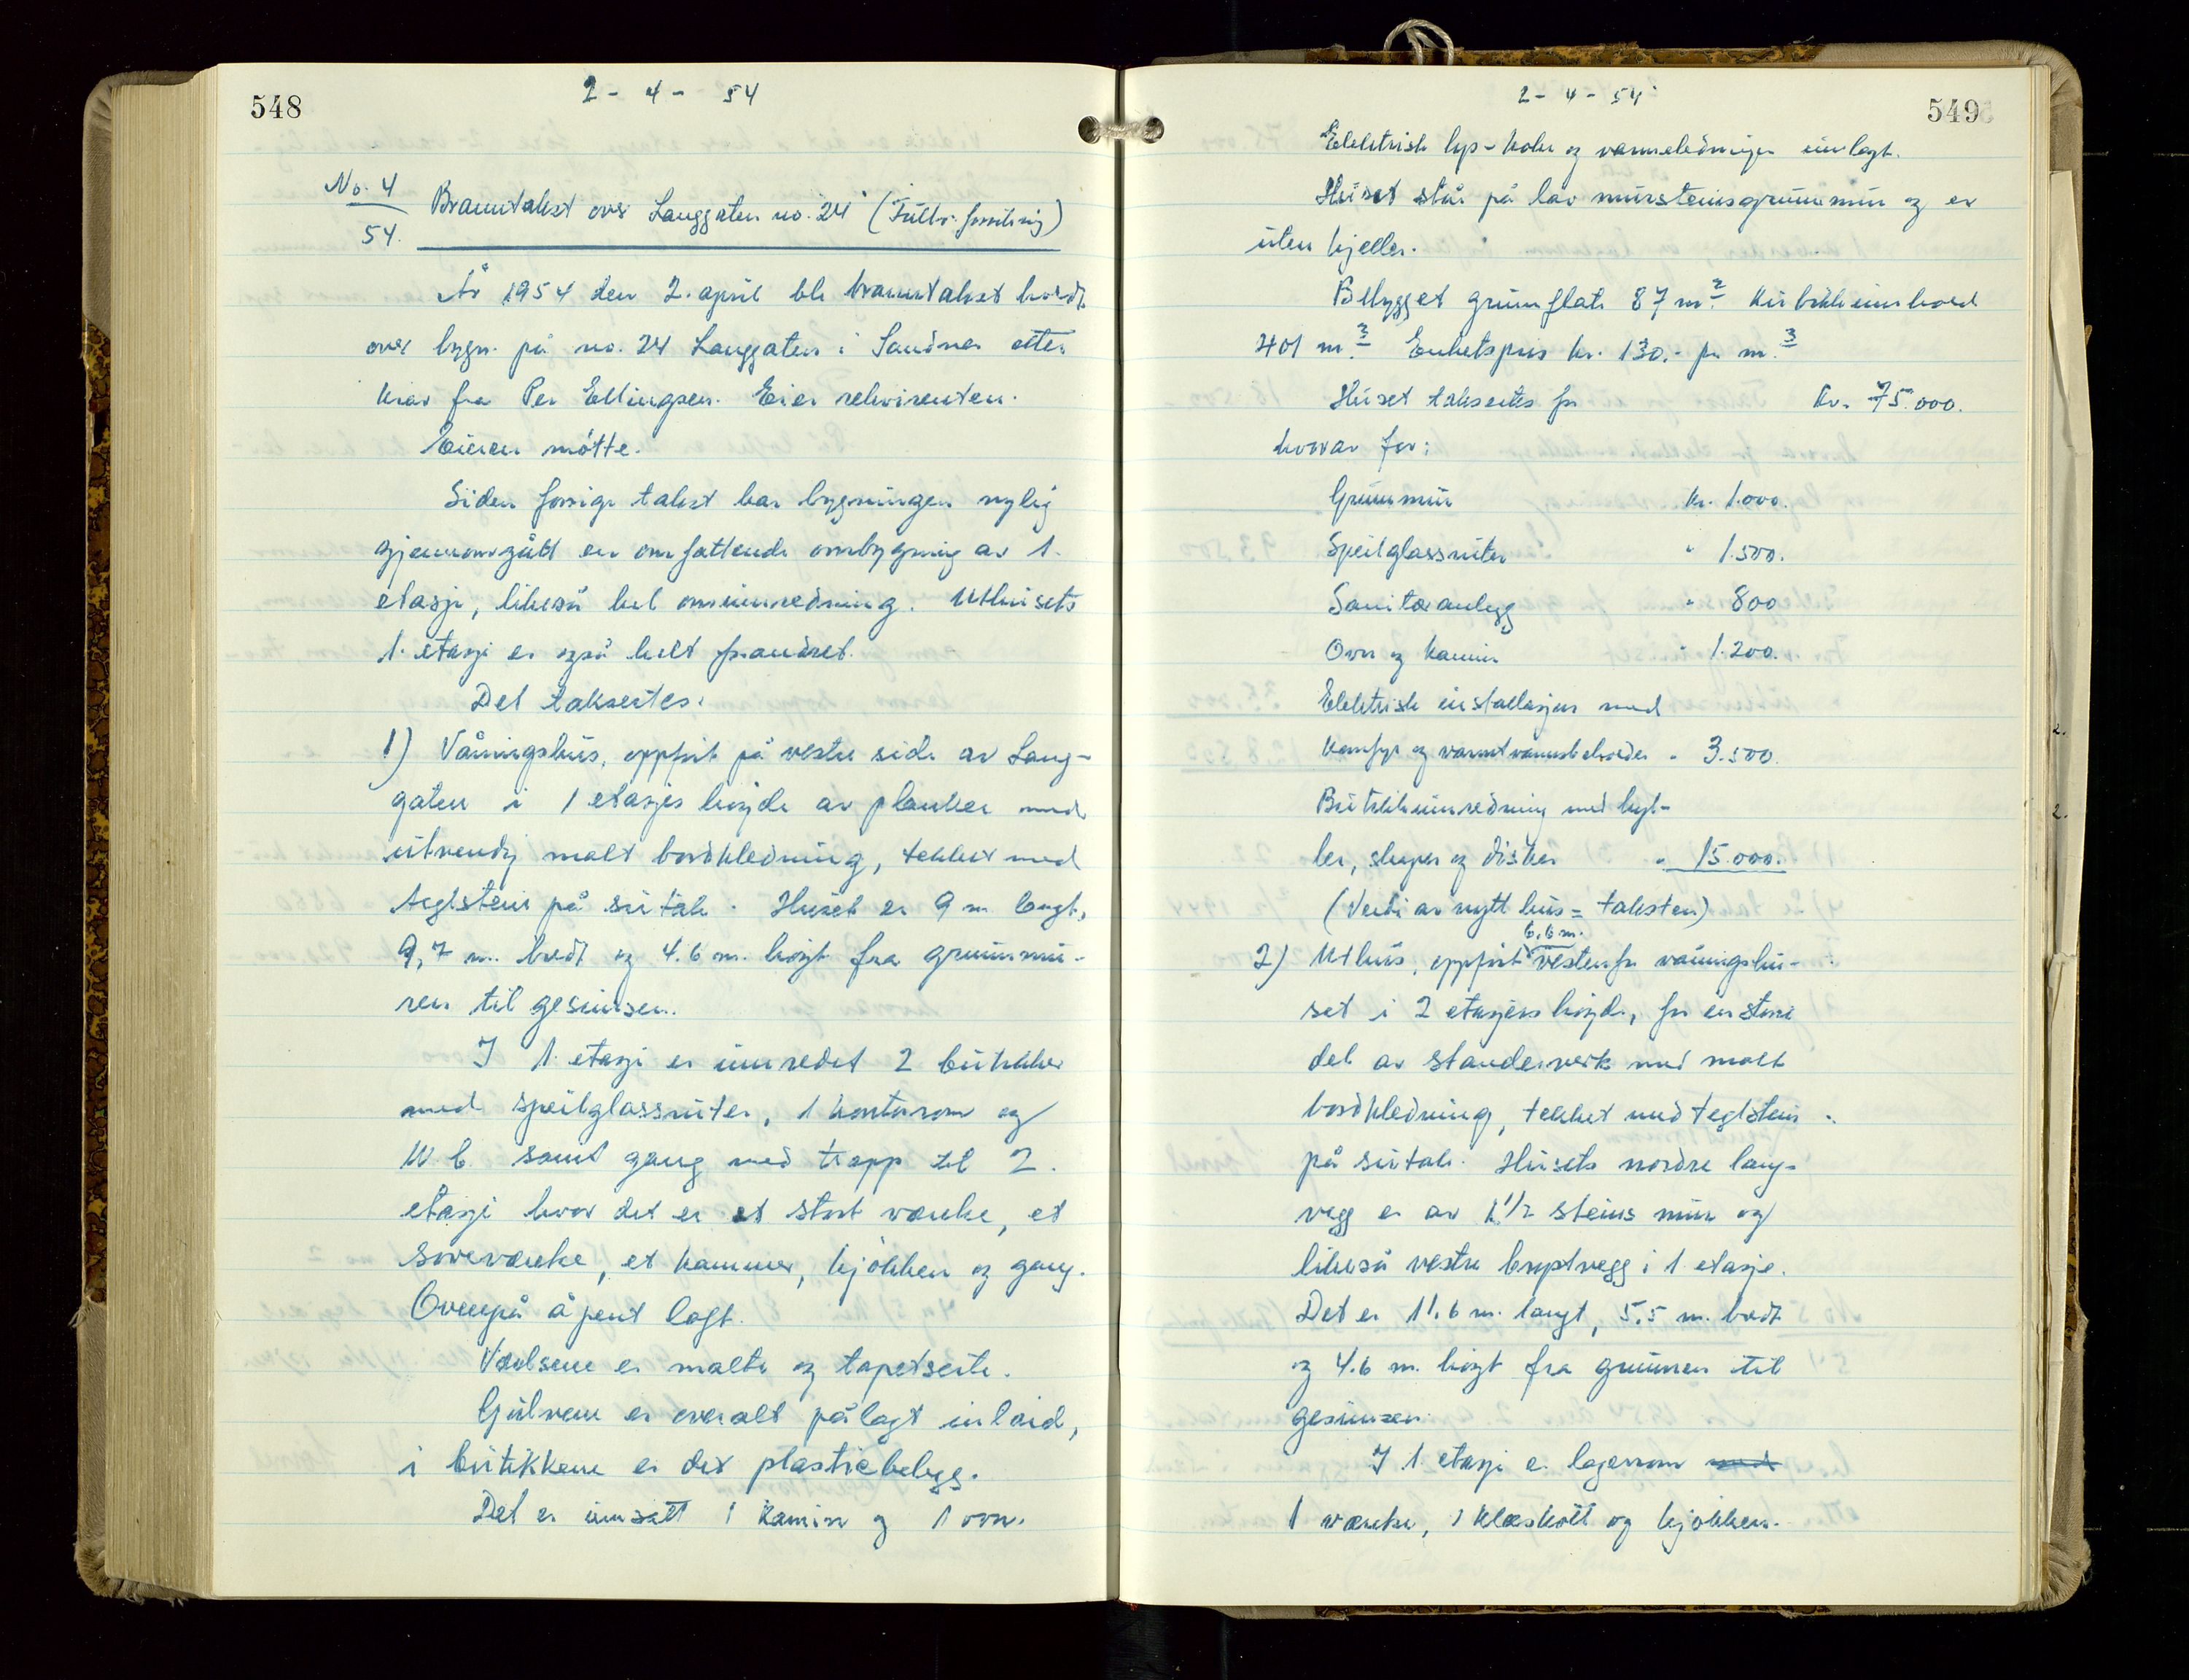 548
2 - 4 - 54
No. 4
54.
Branntakst over Langgaten no. 24 (Fullv. forsikring)
År 1954 den 2. april ble branntakst holdt
over bygn. på no. 24 Langgaten i Sandnes etter
krav fra Per Ellingsen. Eier rekvirenten.
Eieren møtte.
Siden forrige takst har bygningen nylig
gjennomgått en omfattende ombygning av 1.
etasje, likeså hel ominnredning. Uthusets
1. etasje er også helt forandret.
Det takseres:
1) Våningshus, oppført på vestre side av Lang-
gaten i 1 etasjes høyde av planker med
utvendig malt bordkledning, tekket med
teglstein på sutak. Huset er 9 m. langt,
9,7 m. bredt og 4.6 m. høyt fra grunnmu-
ren til gesimsen.
I 1. etasje er innredet 2 butikker
med speilglassruter, 1 kontorrom og
W.C. samt gang med trapp til 2.
etasje hvor det er et stort værelse, et
soveværelse, et kammer, kjøkken og gang.
Ovenpå åpent loft.
Værelsene er malte og tapetserte.
Gulvene er overalt pålagt inlaid,
i butikkene er det plasticbelegg.
Det er innsatt 1 kamin og 1 ovn.
549
2 - 4 - 54
Elektrisk lys- koke og varmeledninger innlagt.
Huset står på lav mursteinsgrunnmur og er
uten kjeller.
Bebygget grunnflate 87 m². Kubikkinnhold
401 m³. Enhetspris kr. 130.- pr m.³
Huset takseres for Kr. 75.000.
hvorav for:
Grunnmur Kr. 1.000.
Speilglassruter " 1.500.
Sanitæranlegg " 800
Ovn og kamin " 1.200.
Elektrisk installasjon med
komfyr og varmtvannsbeholder " 3.500.
Butikkinnredning med hyl-
ler, skaper og disker " 15.000.
(Verdi av nytt hus = taksten)
6,6 m.
2) Uthus, oppført vestenfor våningshu-
set i 2 etasjers høyde, for en større
del av standerverk med malt
bordkledning, tekket med teglstein
på sutak. Husets nordre lang-
vegg er av 1 1/2 steins mur og
likeså vestre langvegg i 1 etasje.
Det er 11.6 m. langt, 5.5 m. bredt
og 4.6 m. høyt fra grunnen til
gesimsen.
I 1 etasje er lagerrom med
1 værelse, 1 kleskott og kjøkken.